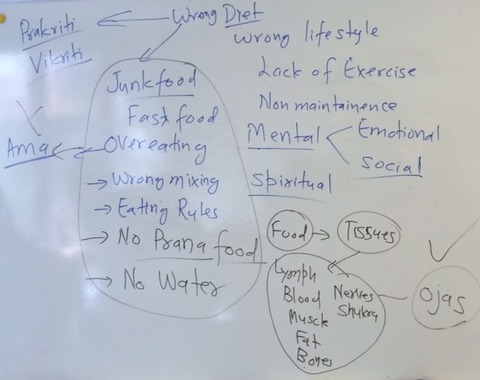 Prakriti
Vikriti
Wrong Diet
Wrong lifestyle
Lack of Exercise
Non maintainence
Mental
Emotional
Social
Spiritual
Junkfood
Fast food
Overeating
Wrong mixing
Eating Rules
No Prana food
No Water
Ama
Food
Tissues
Lymph
Blood
Muscle
Fat
Bones
Nerves
Shukra
Ojas